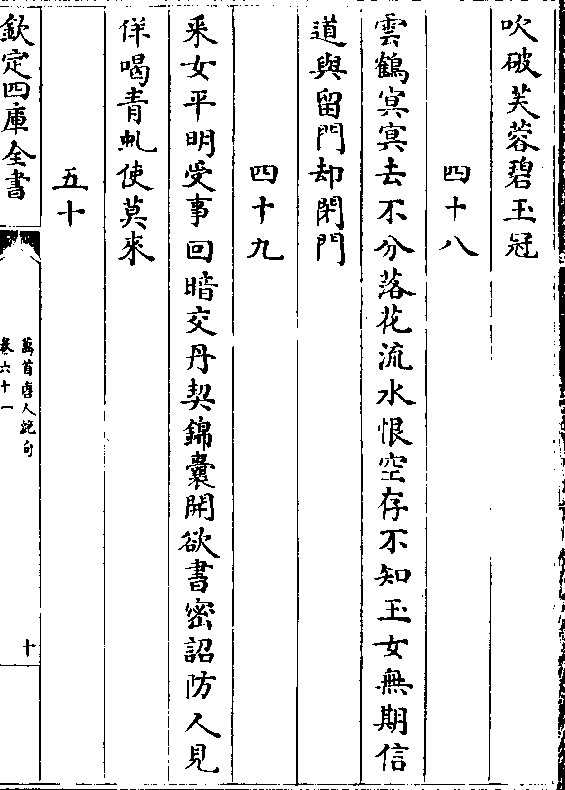 吹破芙蓉碧玉冠
四十八
雲鶴㝠㝠去不分落花流水恨空存不知玉女無期信
道與留門却閉門
四十九
釆女平明受事回暗交丹契錦囊開欲書密詔防人見
佯喝青虬使莫來
五十
欽定四庫全書
萬首唐人絶句
卷六十一
十